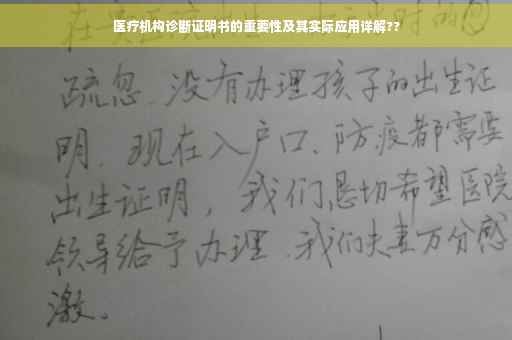 医疗机构诊断证明书的重要性及其实际应用详解??
疏忽、没有办理孩子的出生证
明、现在入户口、防疫都需要
出生证明，我们恳切希望医院
领导给予办理、我们夫妻万分感
激。